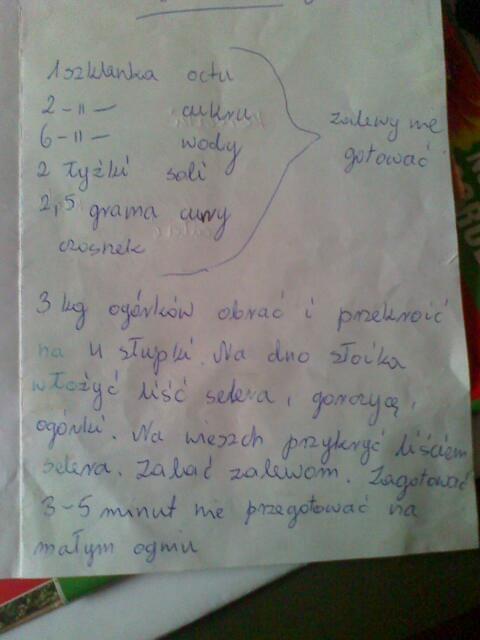 1 szklanka octu
2 - 11 - cukru
6 - 11 - wody
2 łyżki soli
2,5 grama curry
czosnek
zalewy nie
gotować
3 kg ogórków obrać i przekroić
na 4 słupki. Na dno słoika
włożyć liść selera, gorczycę,
ogórki. Na wieszch przykryć liściem
selera. Zalać zalewom. Zagotować
3-5 minut nie przegotować na
małym ogniu